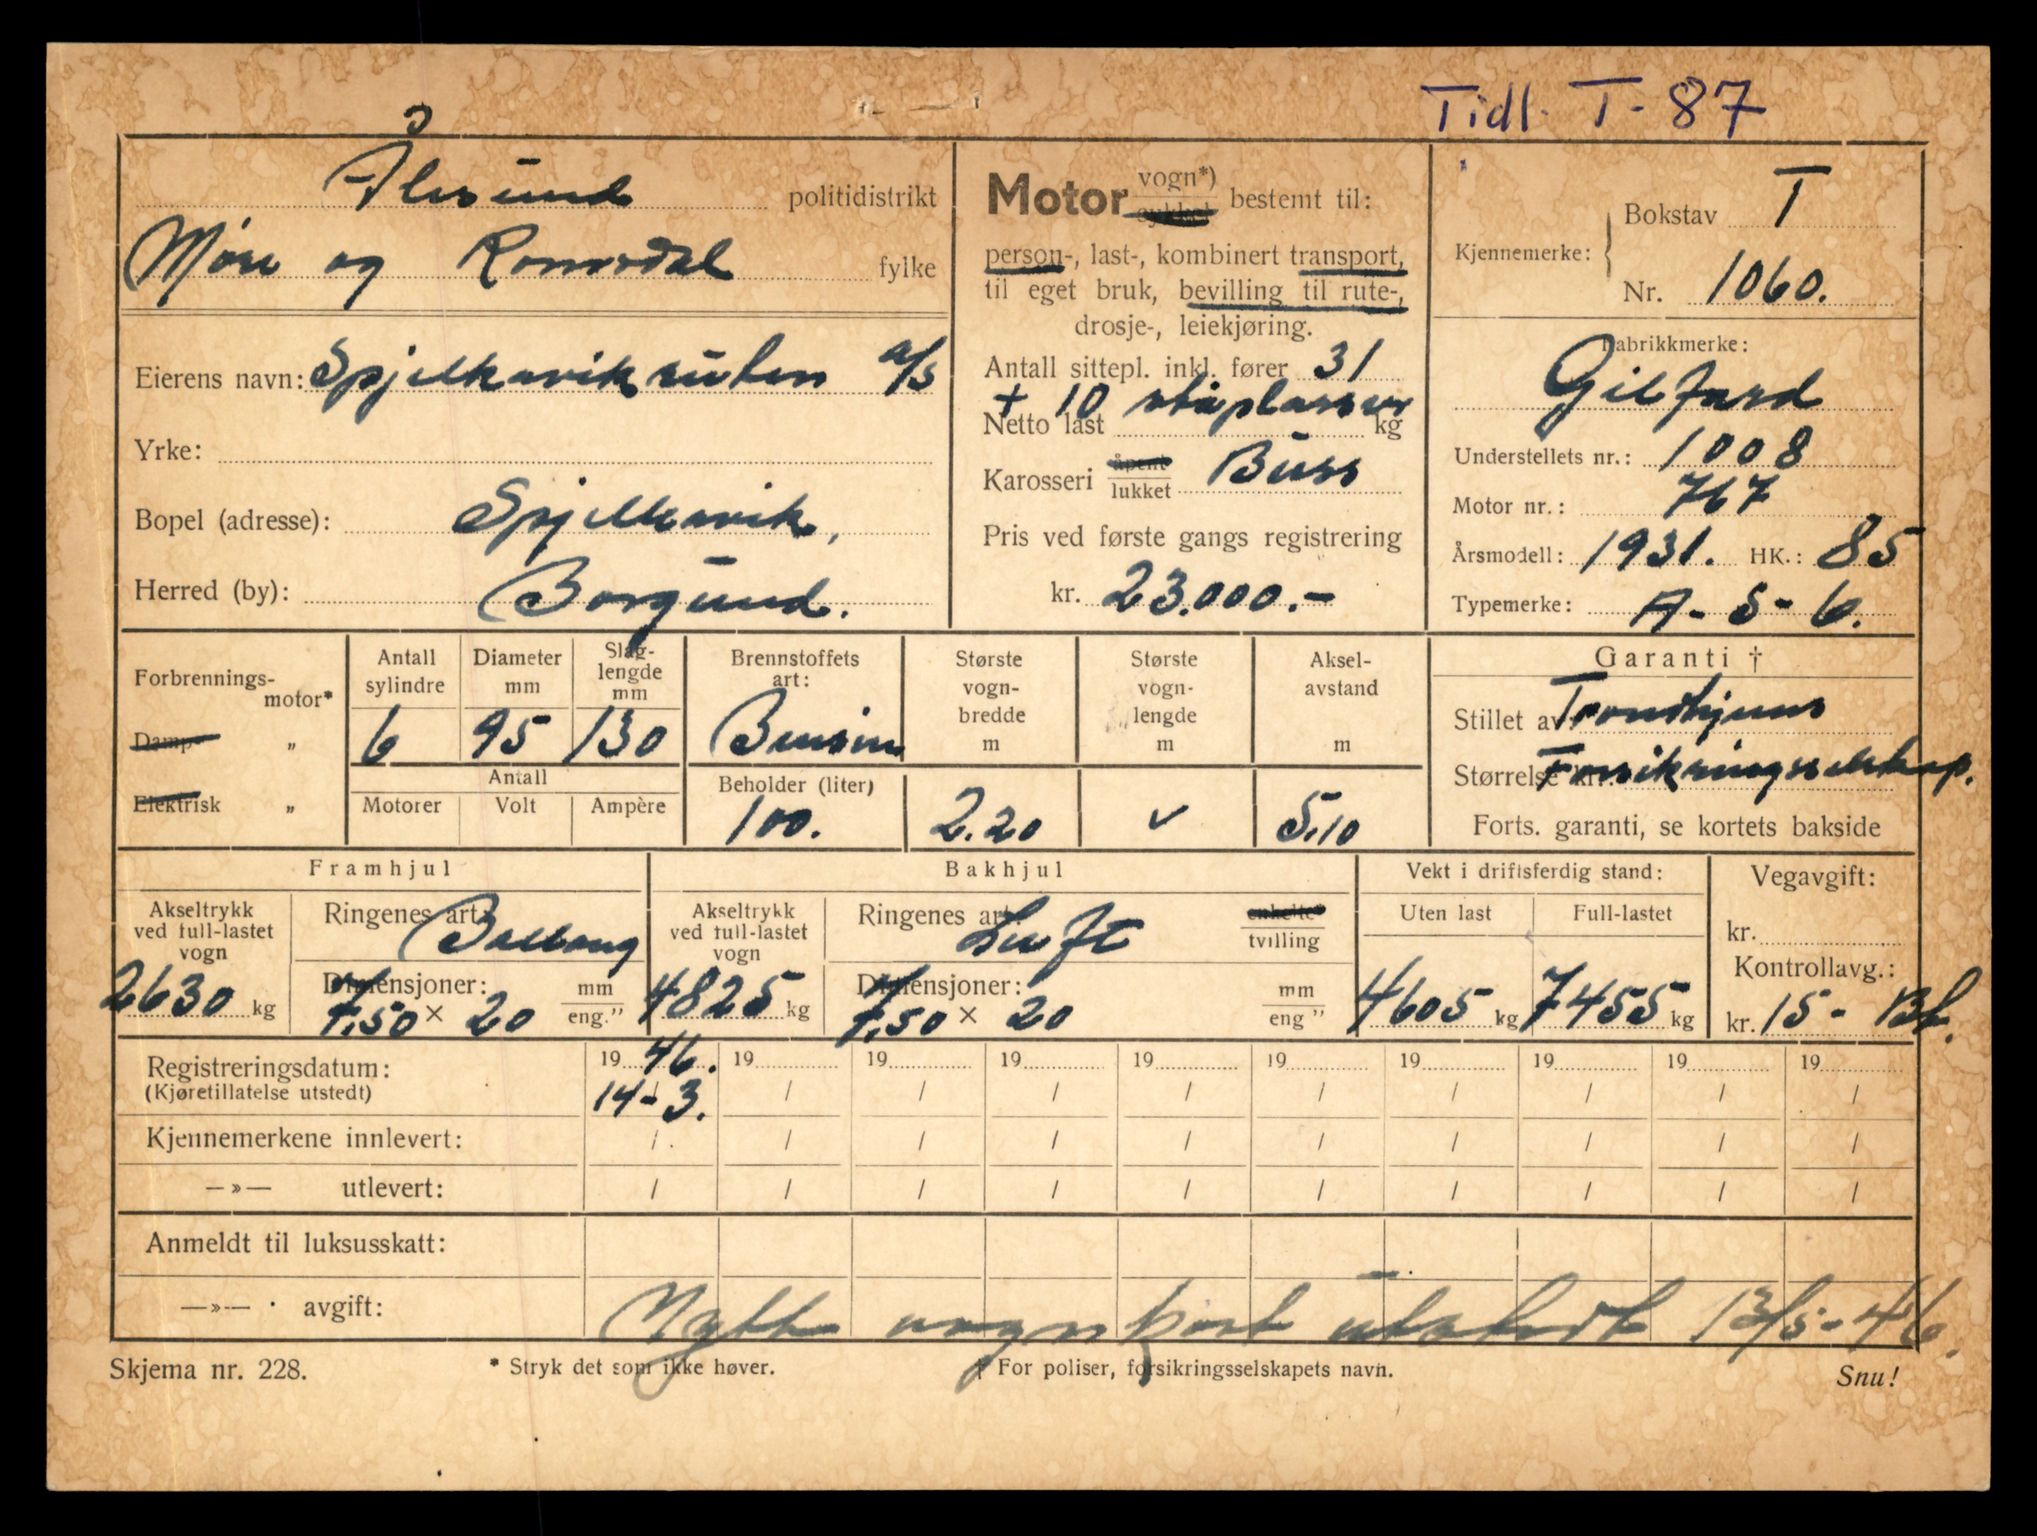 Tidl. T-87
Ålesund politidistrikt
Møre og Romsdal fylke
Eierens navn: Spjelkavikruten a/s
Yrke:
Bopel (adresse): Spjelkavik,
Herred (by): Borgund.
Motor vogn*) sykkel bestemt til:
person-, last-, kombinert transport,
til eget bruk, bevilling til rute-,
drosje-, leiekjøring.
Antall sittepl. inkl. fører 31
+ 10 ståplasser
Netto last kg
Karosseri åpent lukket Buss
Pris ved første gangs registrering
kr. 23.000.-
Kjennemerke: Bokstav T
Nr. 1060.
Fabrikkmerke:
Gilford
Understellets nr.: 1008
Motor nr.: 767
Årsmodell: 1931. HK.: 85
Typemerke: A-S-6.
Forbrennings-motor*
Damp- „
Elektrisk „
Antall sylindre
6
Diameter mm
95
Slag-lengde mm
130
Antall
Motorer Volt Ampère
Brennstoffets art:
Bensin
Beholder (liter)
100.
Største vogn-bredde m
2.20
Største vogn-lengde m
✓
Aksel-avstand m
5.10
Garanti †
Stillet av Trondhjems
Størrelse kr. Forsikringsselskap.
Forts. garanti, se kortets bakside
Framhjul
Akseltrykk ved full-lastet vogn
2630 kg
Ringenes art: Ballong
Dimensjoner: mm
7.50 × 20 eng.”
Bakhjul
Akseltrykk ved full-lastet vogn
4825 kg
Ringenes art: Luft enkelte* tvilling
Dimensjoner: mm
7.50 × 20 eng ”
Vekt i driftsferdig stand:
Uten last Full-lastet
4605 kg 7455 kg
Vegavgift:
kr.
Kontrollavg.:
kr. 15-
Registreringsdatum: 19 46. 19 19 19 19 19 19 19 19 19
(Kjøretillatelse utstedt) 14-3. / / / / / / / / /
Kjennemerkene innlevert: / / / / / / / / / /
—»— utlevert: / / / / / / / / / /
Anmeldt til luksusskatt:
—»— · avgift: Nytt vognkort utstedt 13/5-46.
Skjema nr. 228. * Stryk det som ikke høver. † For poliser, forsikringsselskapets navn. Snu!